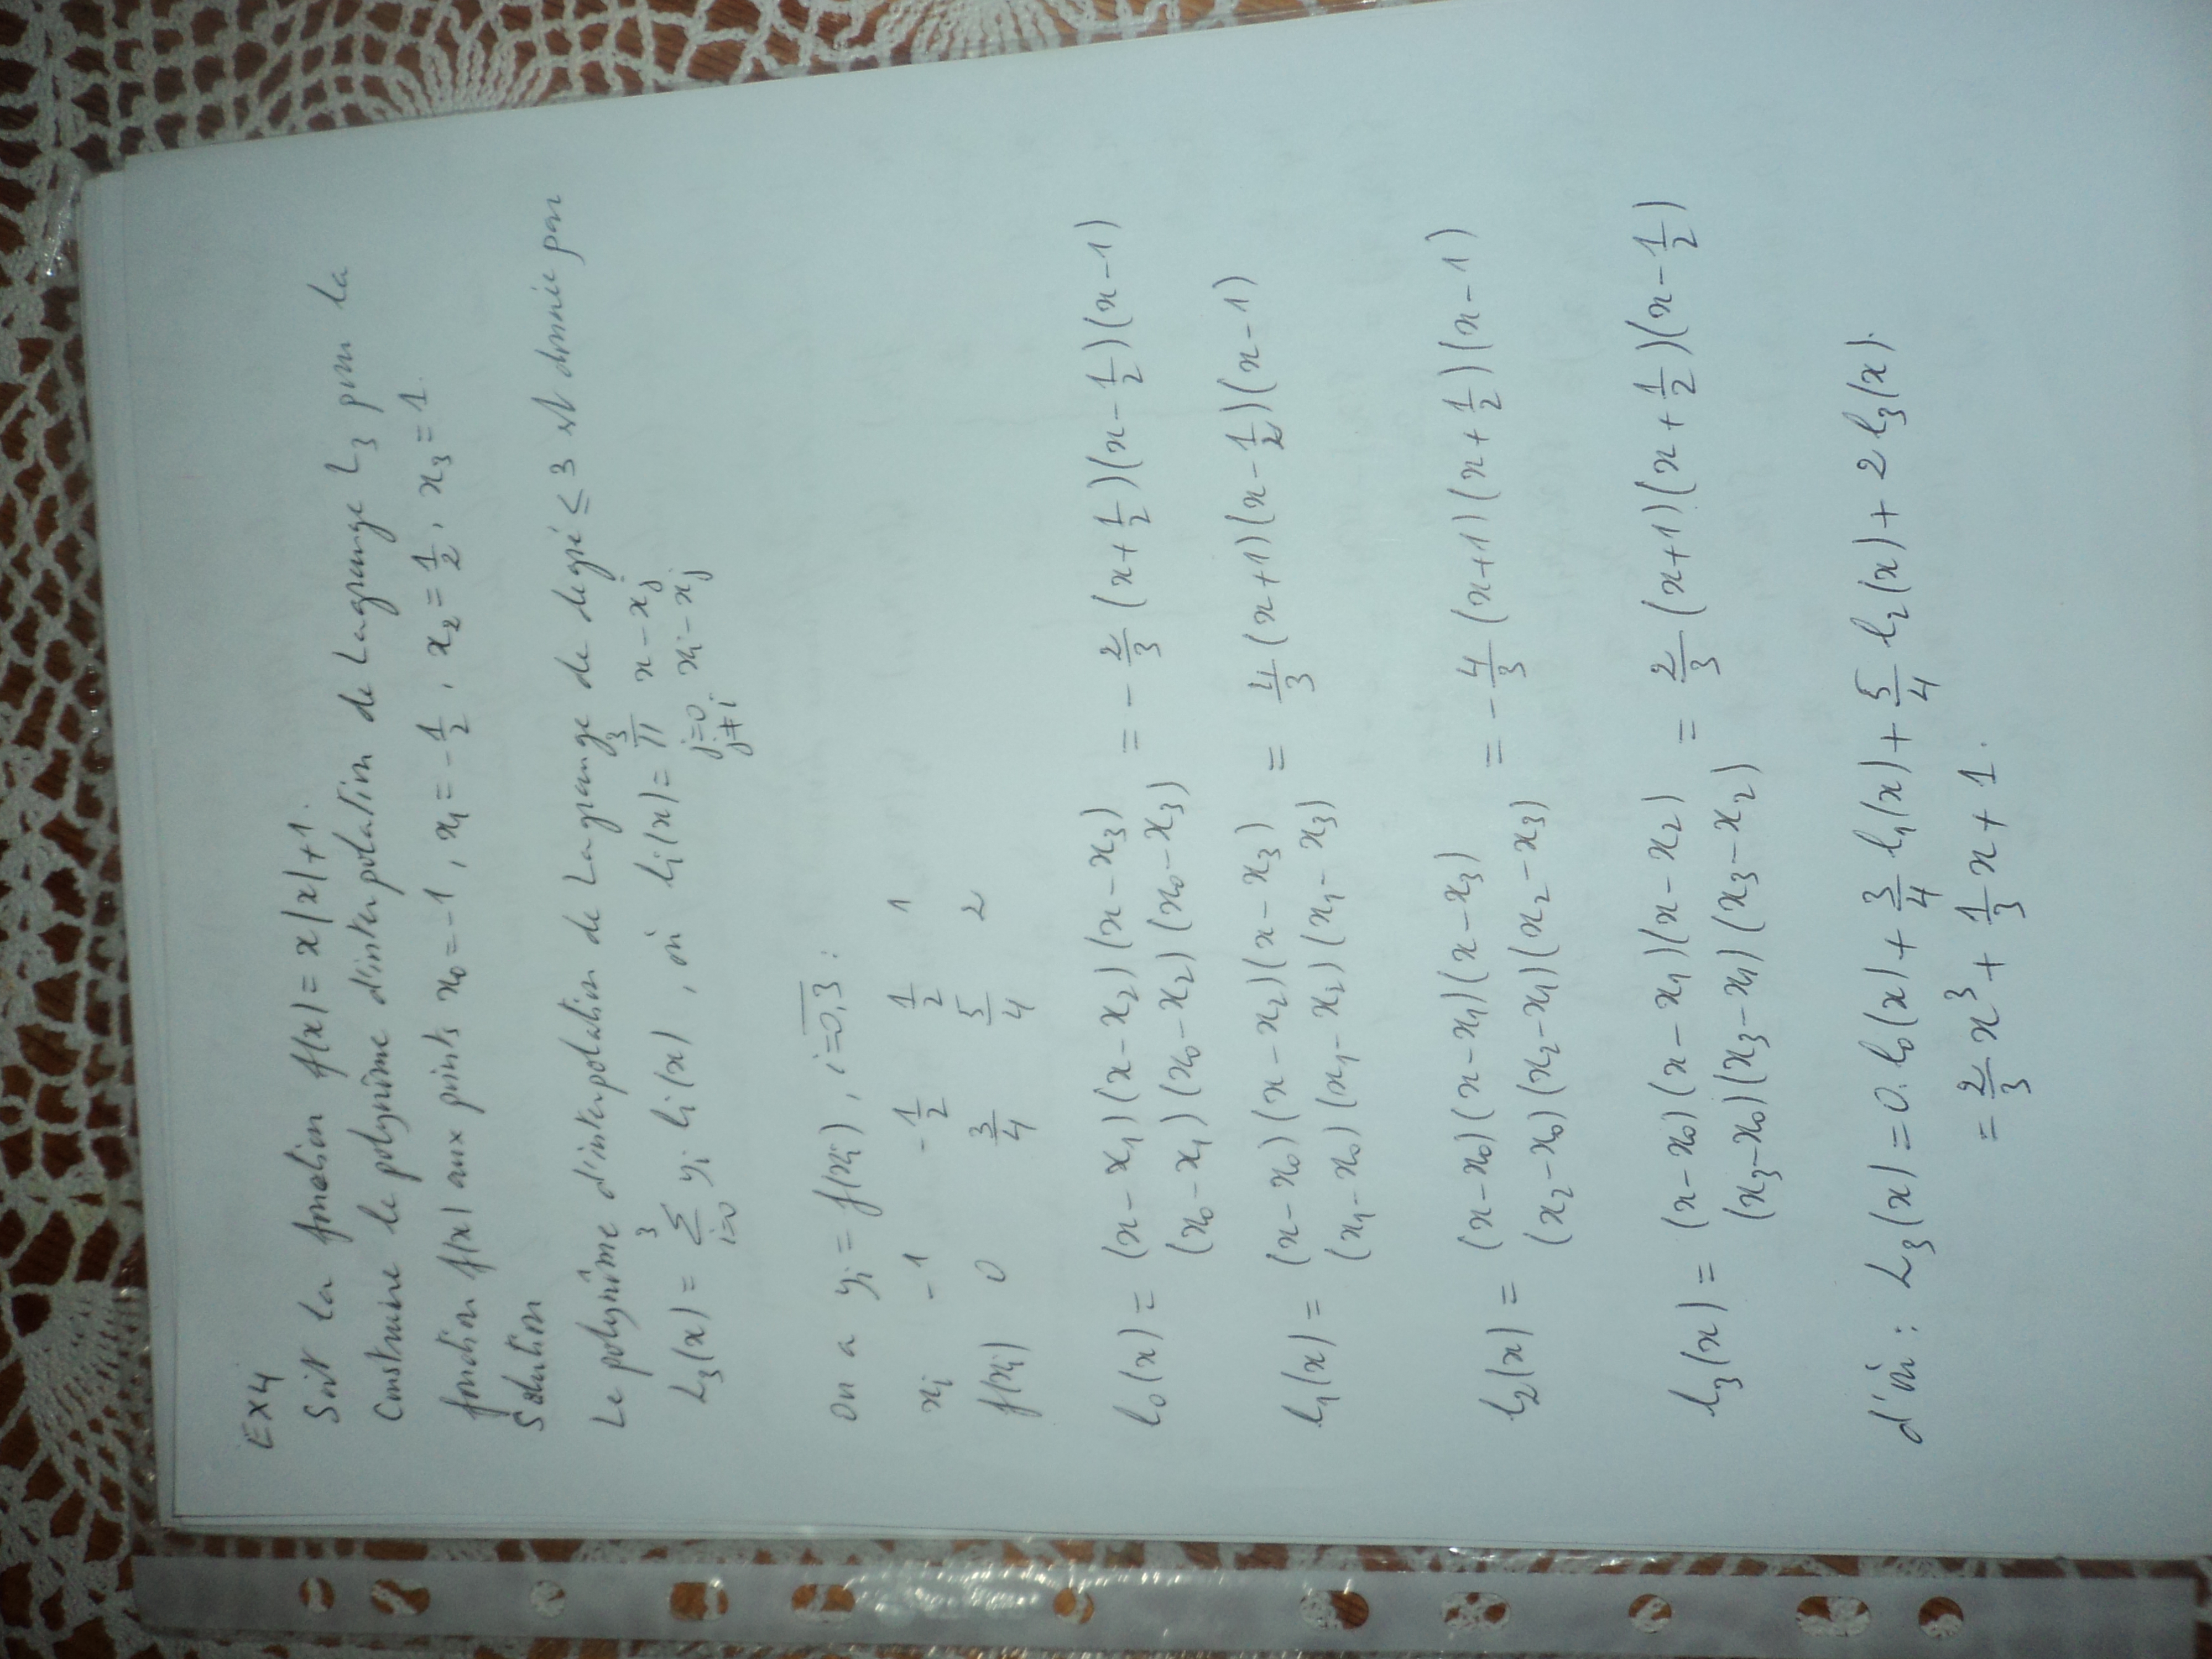 EX4
Soit la fonction f(x) = x|x|+1.
Construire le polynôme d'interpolation de Lagrange L₃ pour la
fonction f(x) aux points x₀ = -1, x₁ = -1/2, x₂ = 1/2, x₃ = 1.
Solution
Le polynôme d'interpolation de Lagrange de degré ≤ 3 est donnée par
L₃(x) = ∑_{i=0}^{3} yᵢ lᵢ(x), où lᵢ(x) = ∏_{j=0, j≠i}^{3} (x - xⱼ)/(xᵢ - xⱼ)
on a yᵢ = f(xᵢ), i=0,3 :
xᵢ -1 -1/2 1/2 1
f(xᵢ) 0 3/4 5/4 2
l₀(x) = (x-x₁)(x-x₂)(x-x₃)/(x₀-x₁)(x₀-x₂)(x₀-x₃) = -2/3 (x+1/2)(x-1/2)(x-1)
l₁(x) = (x-x₀)(x-x₂)(x-x₃)/(x₁-x₀)(x₁-x₂)(x₁-x₃) = 4/3 (x+1)(x-1/2)(x-1)
l₂(x) = (x-x₀)(x-x₁)(x-x₃)/(x₂-x₀)(x₂-x₁)(x₂-x₃) = -4/3 (x+1)(x+1/2)(x-1)
l₃(x) = (x-x₀)(x-x₁)(x-x₂)/(x₃-x₀)(x₃-x₁)(x₃-x₂) = 2/3 (x+1)(x+1/2)(x-1/2)
d'où : L₃(x) = 0.l₀(x) + 3/4 l₁(x) + 5/4 l₂(x) + 2 l₃(x).
= 2/3 x³ + 1/3 x + 1.